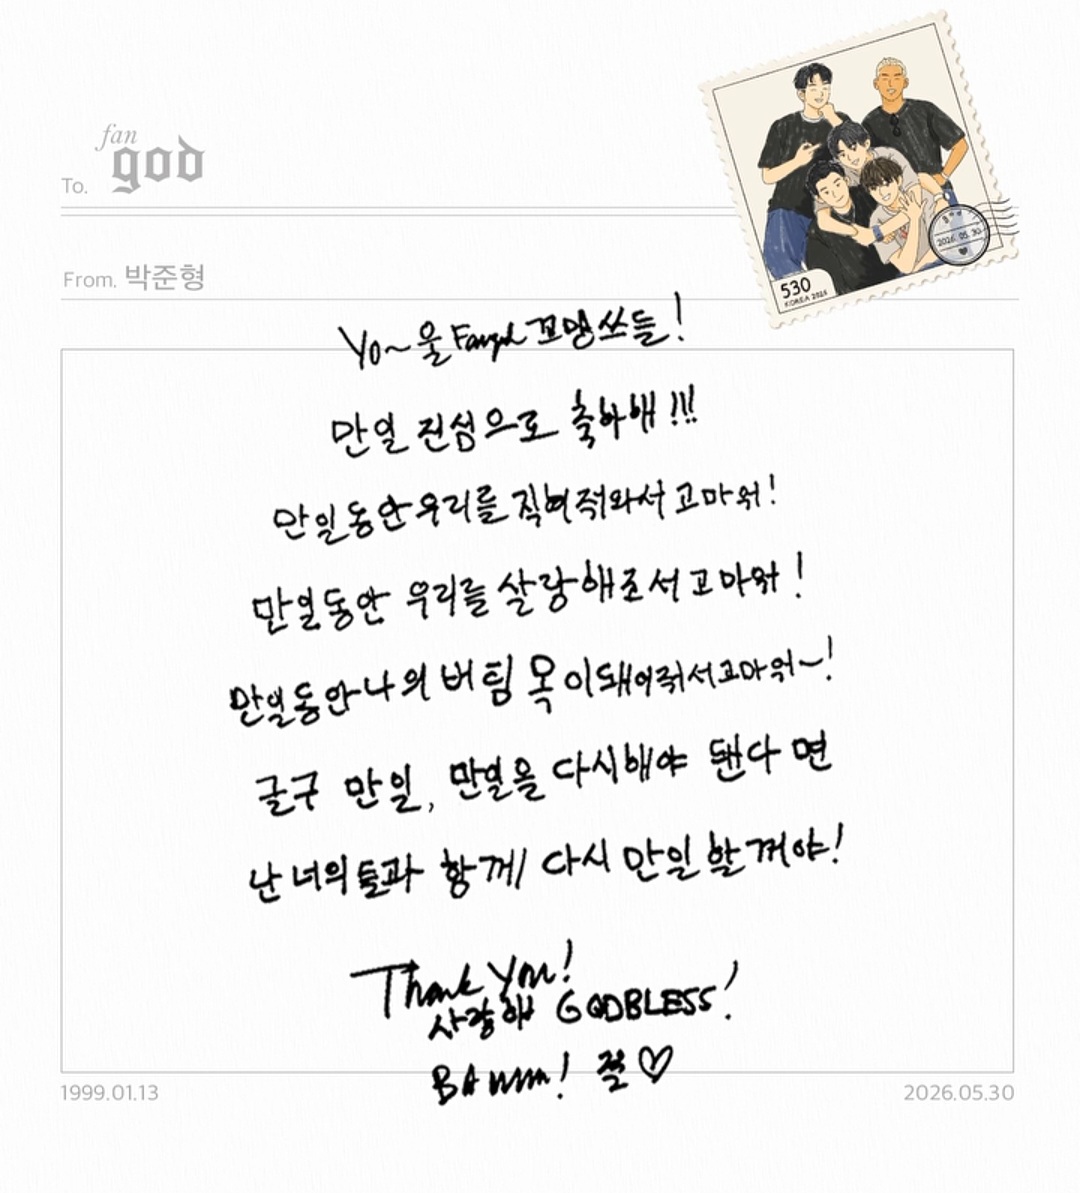 fan
To. god
From. 박준형
2026. 05. 30
530
KOREA 2026
Yo~ 울 Fangod 꼬맹쓰들!
만일 진심으로 축하해!!!
만일동안 우리를 직혀줘와서 고마워!
만일동안 우리를 살랑해조서 고마워!
만일동안 나의 버팀목이돼어줘서고마워~!
글구 만일, 만일을 다시해야 됀다면
난 너의들과 함께 다시 만일 할꺼야!
Thank You!
사랑해 GODBLESS!
BAMMM! 쭌♡
1999.01.13
2026.05.30